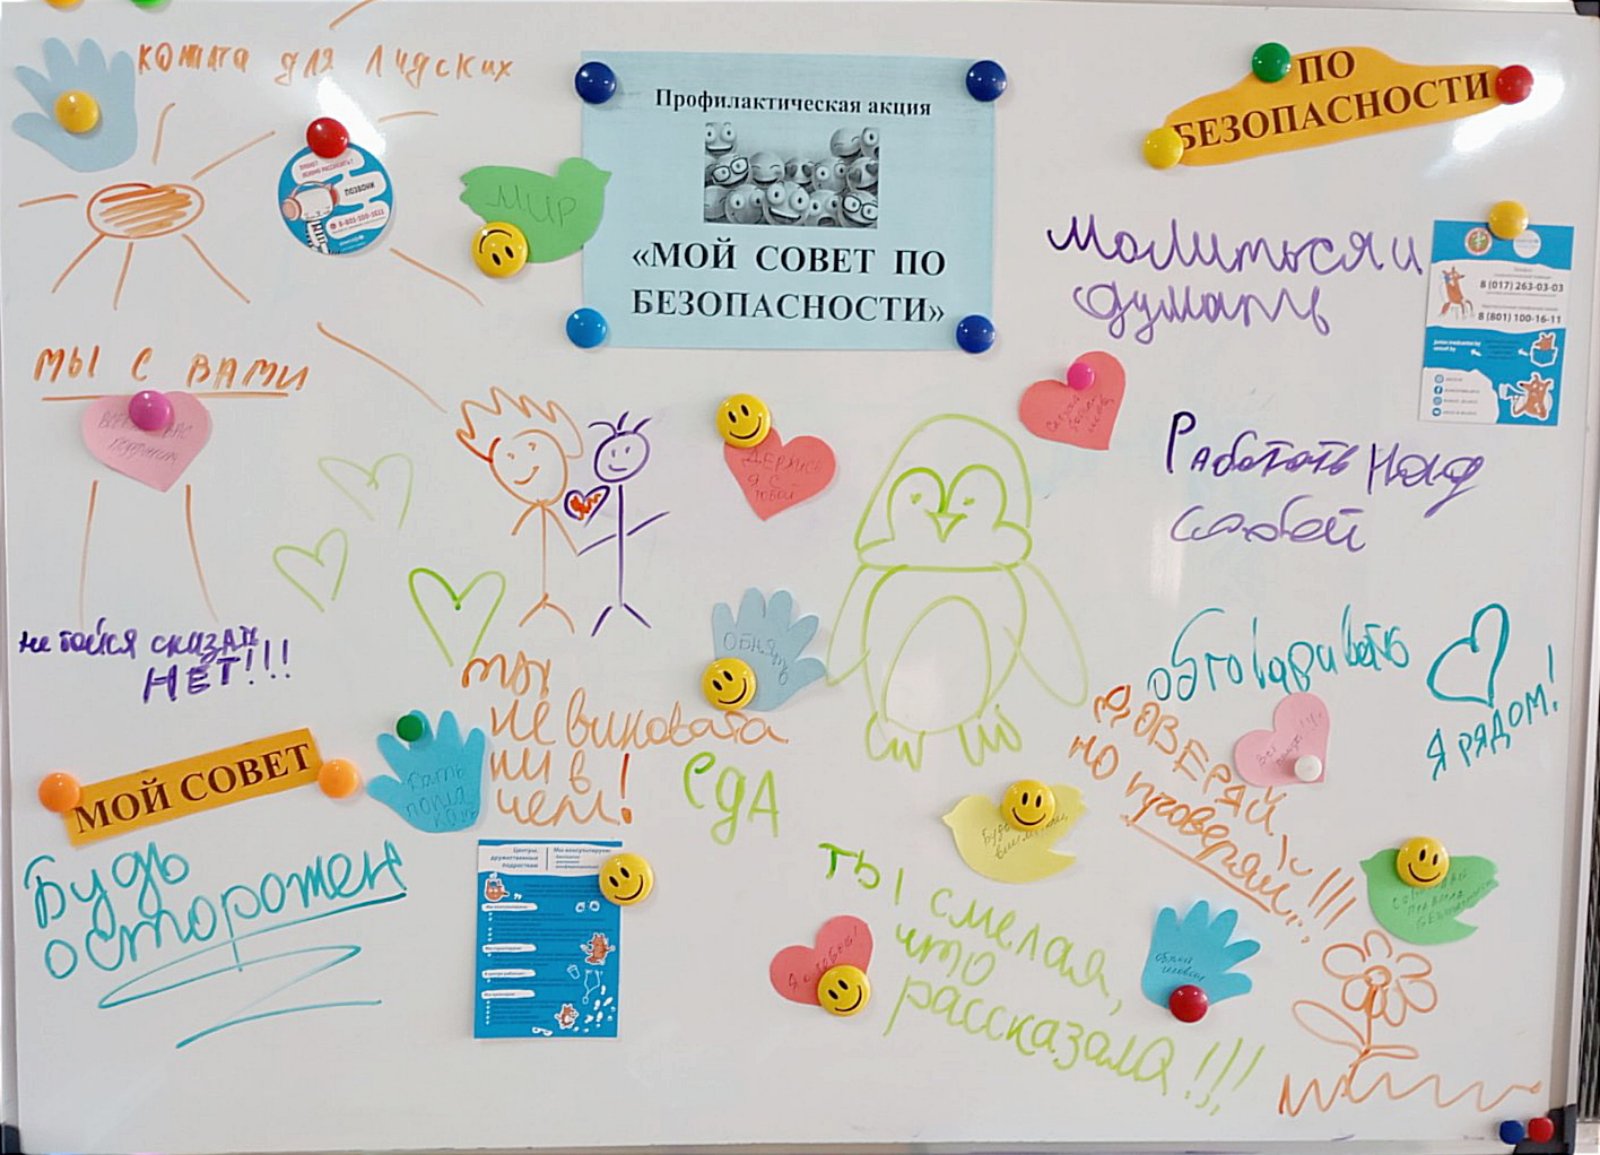 комната для людских
Профилактическая акция
«МОЙ СОВЕТ ПО
БЕЗОПАСНОСТИ»
ПО
БЕЗОПАСНОСТИ
МИР
ПОЗВОНИ
8-801-100-1611
Молиться и
думать
8 (017) 263-03-03
8 (801) 100-16-11
МЫ С ВАМИ
ДЕРЖИСЬ
Я С
ТОБОЙ
Работать над
собой
не бойся сказать
НЕТ!!!
ОБНЯТЬ
обговаривать
Я РЯДОМ!
ты
не виновата
ни в
чем!
ДОВЕРЯЙ,
но проверяй!!!
МОЙ СОВЕТ
Дать
попла
кать
еда
Будь
осторожен
Центры,
дружественные
подросткам
Мы консультируем:
ты смелая,
что
рассказала!!!
Я с тобой!